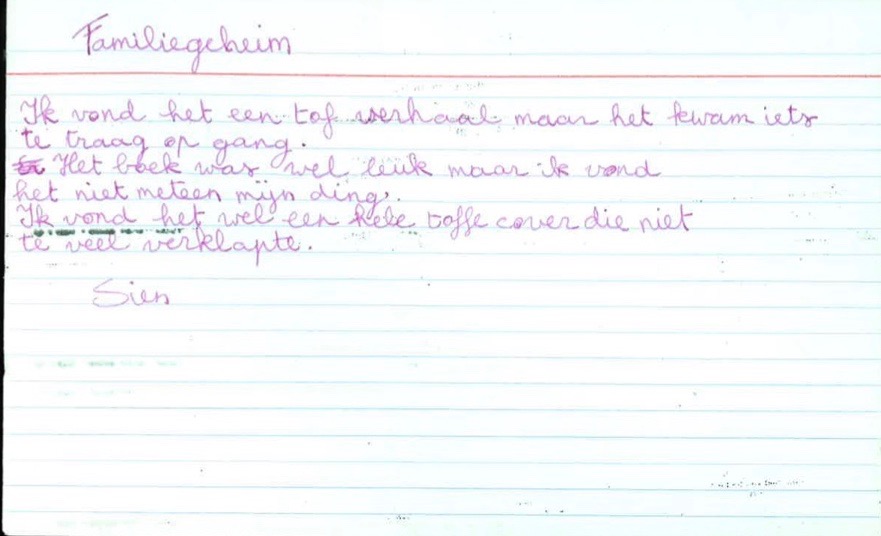 Familiegeheim
Ik vond het een tof verhaal maar het kwam iets
te traag op gang.
Het boek was wel leuk maar ik vond
het niet meteen mijn ding.
Ik vond het wel een hele toffe cover die niet
te veel verklapte.
Sien